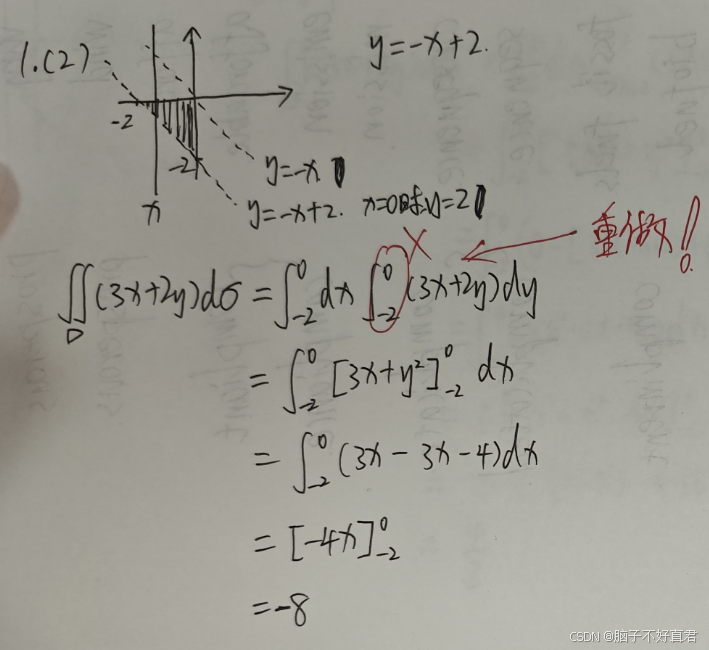 1.(2)
y=-x+2.
-2
-2
y=-x
x
y=-x+2. x=0时y=2
重做!
∬_D (3x+2y)dσ = ∫_{-2}^{0} dx ∫_{-2}^{0} (3x+2y)dy
= ∫_{-2}^{0} [3x+y²]_{-2}^{0} dx
= ∫_{-2}^{0} (3x-3x-4)dx
= [-4x]_{-2}^{0}
=-8
CSDN @脑子不好直君